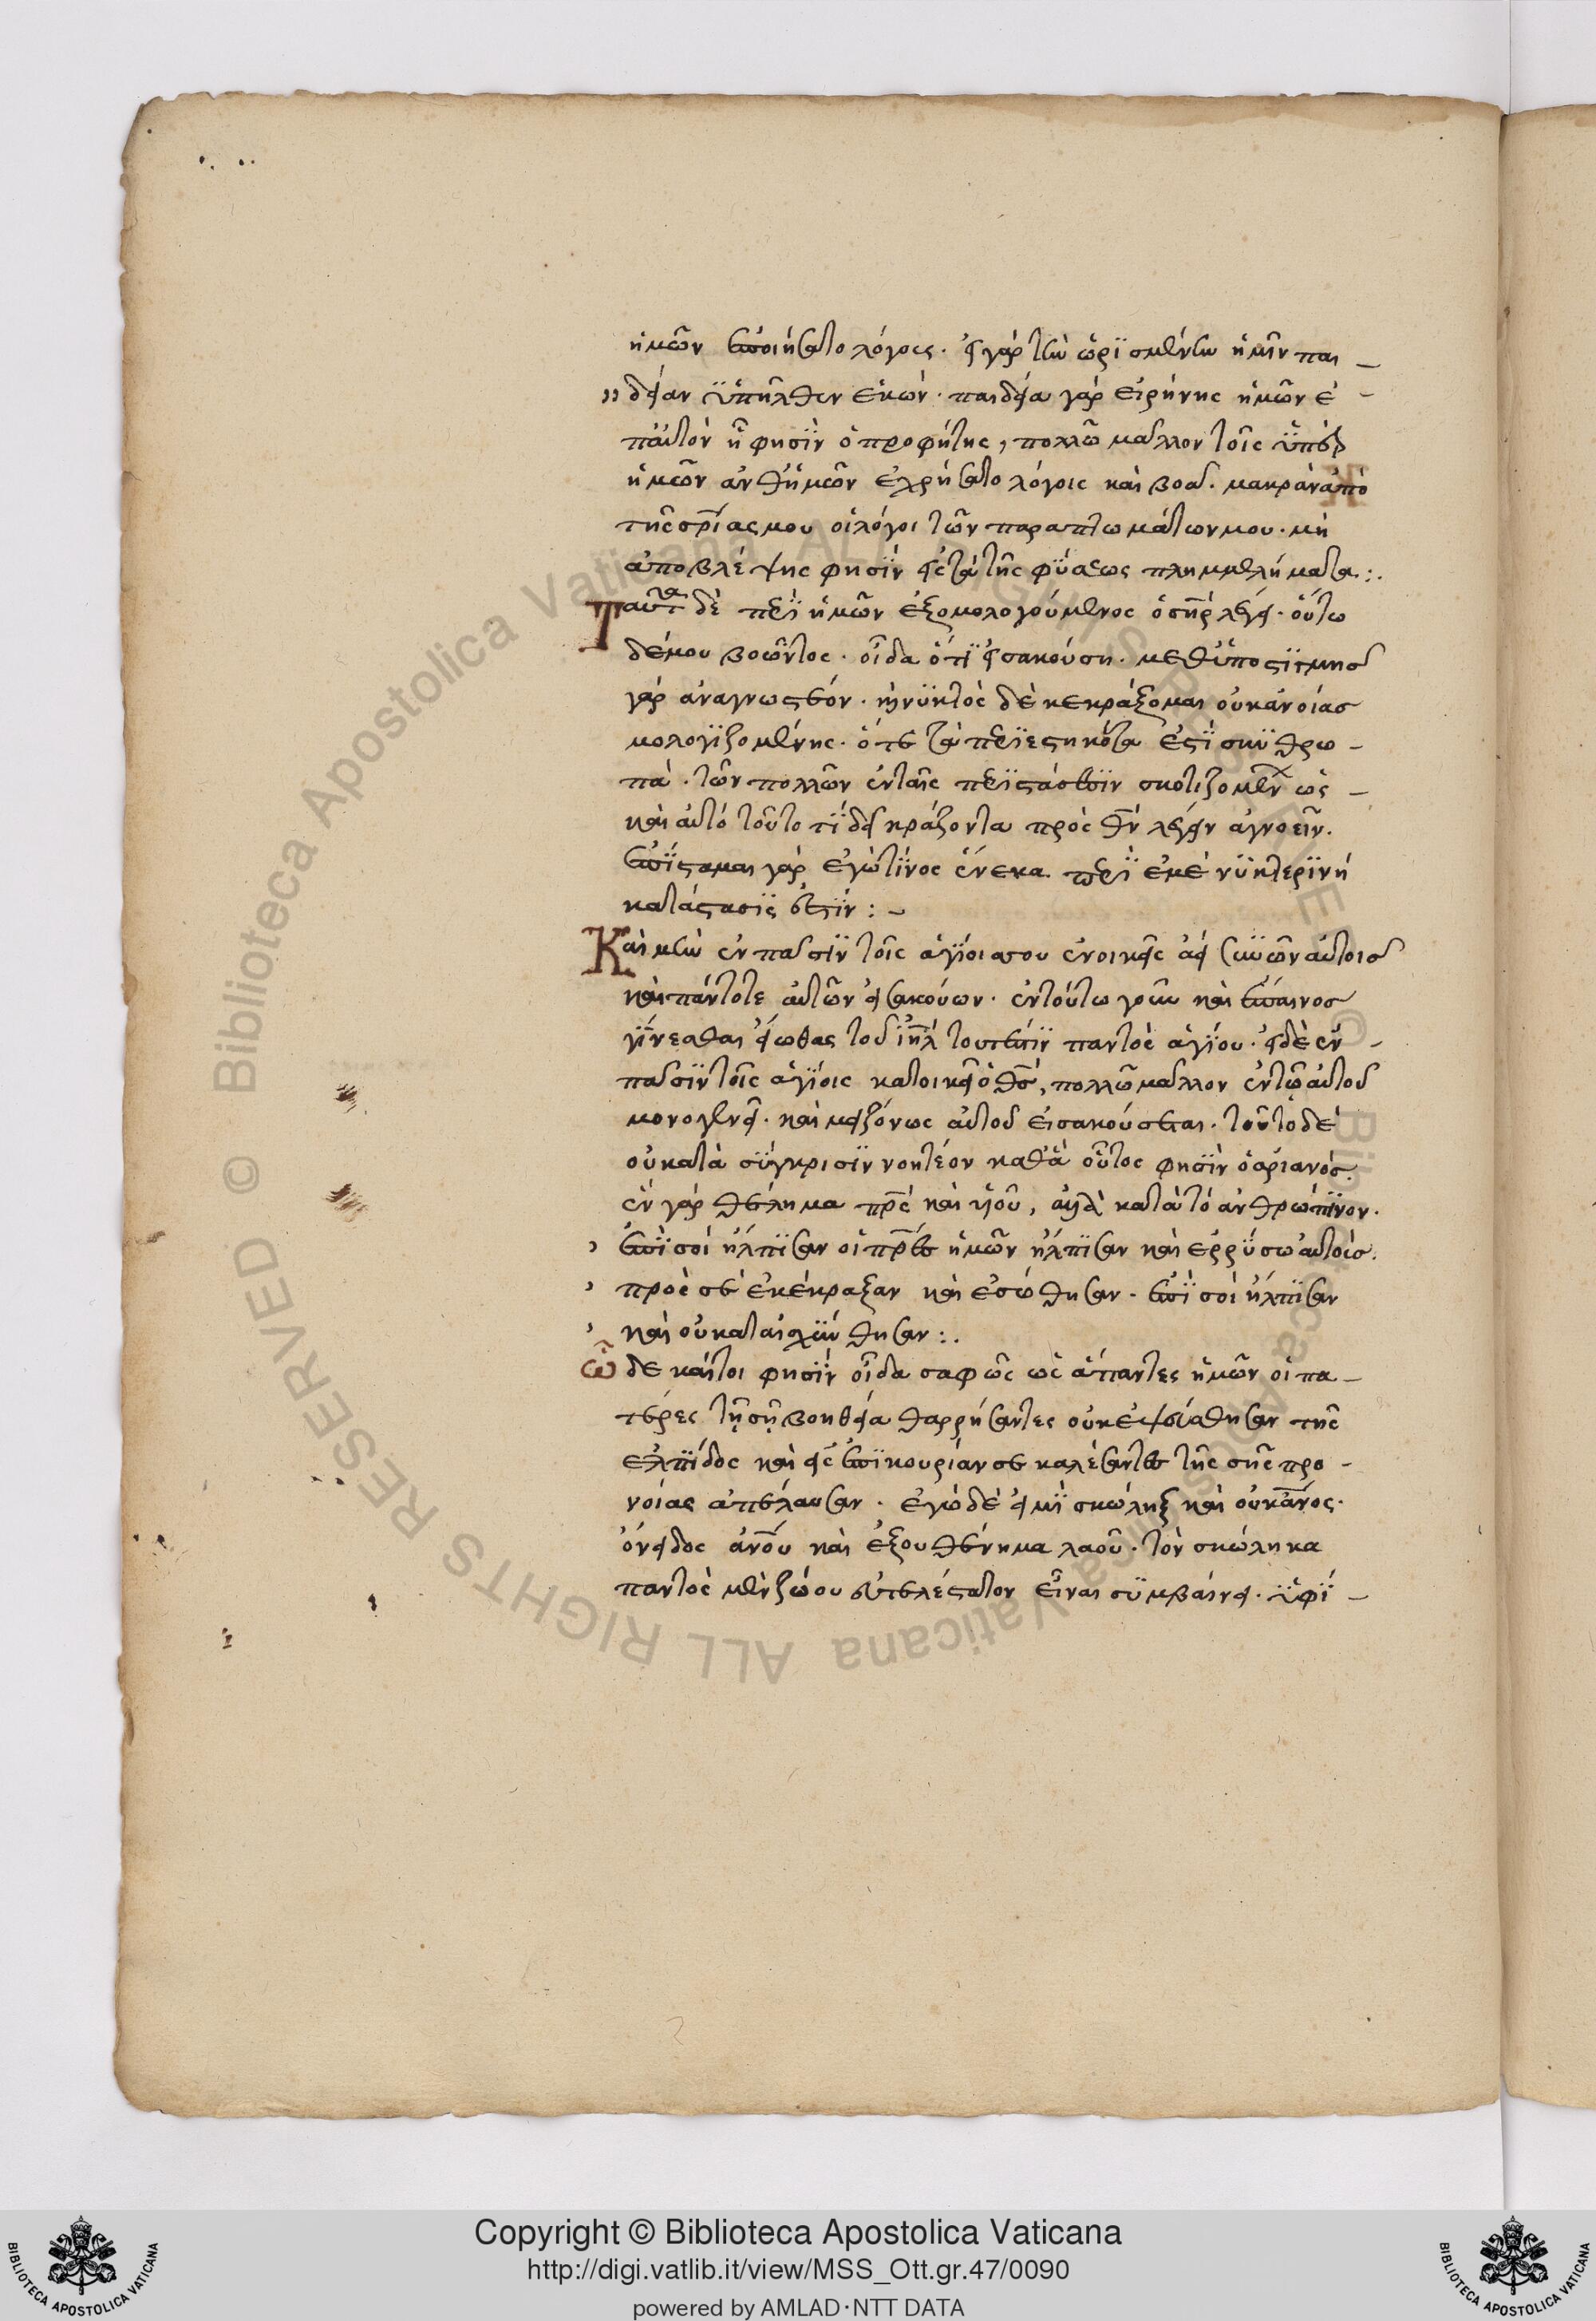 ἡμῶν ἐποιήσατο λόγους. εἰ γὰρ τὴν ὡρισμένην ἡμῖν παι-
δείαν ὑπῆλθεν ἑκών. παιδεία γὰρ εἰρήνης ἡμῶν ἐ-
π αὐτὸν ᾗ φησὶν ὁ προφήτης, πολλῶ μᾶλλον τοῖς ὑπὲρ
ἡμῶν ἀνθ ἡμῶν ἐχρήσατο λόγοις καὶ βοᾶ. μακρὰν ἀπὸ
τῆς σρίας μου οἱ λόγοι τῶν παραπτωμάτων μου. μὴ
ἀποβλέψης φησὶν εἰς τὰ τῆς φύσεως πλημμελήματα:.
Ταῦτα δὲ περὶ ἡμῶν ἐξομολογούμενος ὁ σηρ λέγει. οὕτω
δέ μου βοῶντος. οἶδα ὅτι εἰσακούση. μεθ ὑποστιγμῆσ
γὰρ ἀναγνωστέον. νυκτὸς δὲ κεκράξομαι οὐκ ἀνοίασ
μο λογιζομένης. ὅτε τὰ περιεστηκότα ἐστὶ σκυθρω-
πὰ. τῶν πολλῶν ἐν ταῖς περιστάσεσιν σκοτιζομένων ὡς
καὶ αὐτὸ τοῦτο τί δεῖ κράζοντα πρὸς θν λέγειν ἀγνοεῖν.
ἐπίσταμαι γὰρ ἐγὼ τίνος ἕνεκα περὶ ἐμὲ νυκτερινὴ
κατάστασις ἐστίν:-
Καὶ μὴν ἐν πᾶσιν τοῖς ἁγίοις σου ἐνοικεῖς ἀεὶ συνὼν αὐτοῖσ
καὶ πάντοτε αὐτῶν εἰσακούων. ἐν τούτω γοῦν καὶ ἔπαινοσ
γίνεσθαι εἴωθας τοῦ ιηλ τουτέστιν παντὸς ἁγίου. εἰ δὲ ἐν
πᾶσιν τοῖς ἁγίοις κατοικεῖ ὁ θς, πολλῶ μᾶλλον ἐν τῶ αὐτοῦ
μονογενεῖ. καὶ μειζόνως αὐτοῦ εἰσακούσεται. τοῦτο δὲ
οὐ κατὰ σύγκρισιν νοητέον καθ ἃ οὗτος φησὶν ὁ ἀριανόσ.
ἓν γὰρ θέλημα πρς καὶ υἱοῦ, ἀλλὰ κατὰ τὸ ἀνθρώπινον.
ἐπὶ σοὶ ἤλπισαν οἱ πρες ἡμῶν ἤλπισαν καὶ ἐρρύσω αὐτούσ.
πρὸς σὲ ἐκέκραξαν καὶ ἐσώθησαν. ἐπὶ σοὶ ἤλπισαν
καὶ οὐ κατησχύνθησαν:.
ὧδε καίτοι φησὶν οἶδα σαφῶς ὡς ἅπαντες ἡμῶν οἱ πα-
τέρες τῆ σῆ βοηθεία θαρρήσαντες οὐκ ἐψεύσθησαν τῆς
ἐλπίδος καὶ εἰς ἐπικουρίαν σε καλέσαντες τῆς σῆς προ-
νοίας ἀπέλαυσαν. ἐγὼ δὲ εἰμὶ σκώληξ καὶ οὐκ ἄνος.
ὄνειδος ἀνου καὶ ἐξουθένημα λαοῦ. τὸν σκώληκα
παντὸς μὲν ζώου εὐτελέστατον εἶναι συμβαίνει. ὑφί-
Copyright © Biblioteca Apostolica Vaticana
http://digi.vatlib.it/view/MSS_Ott.gr.47/0090
powered by AMLAD·NTT DATA